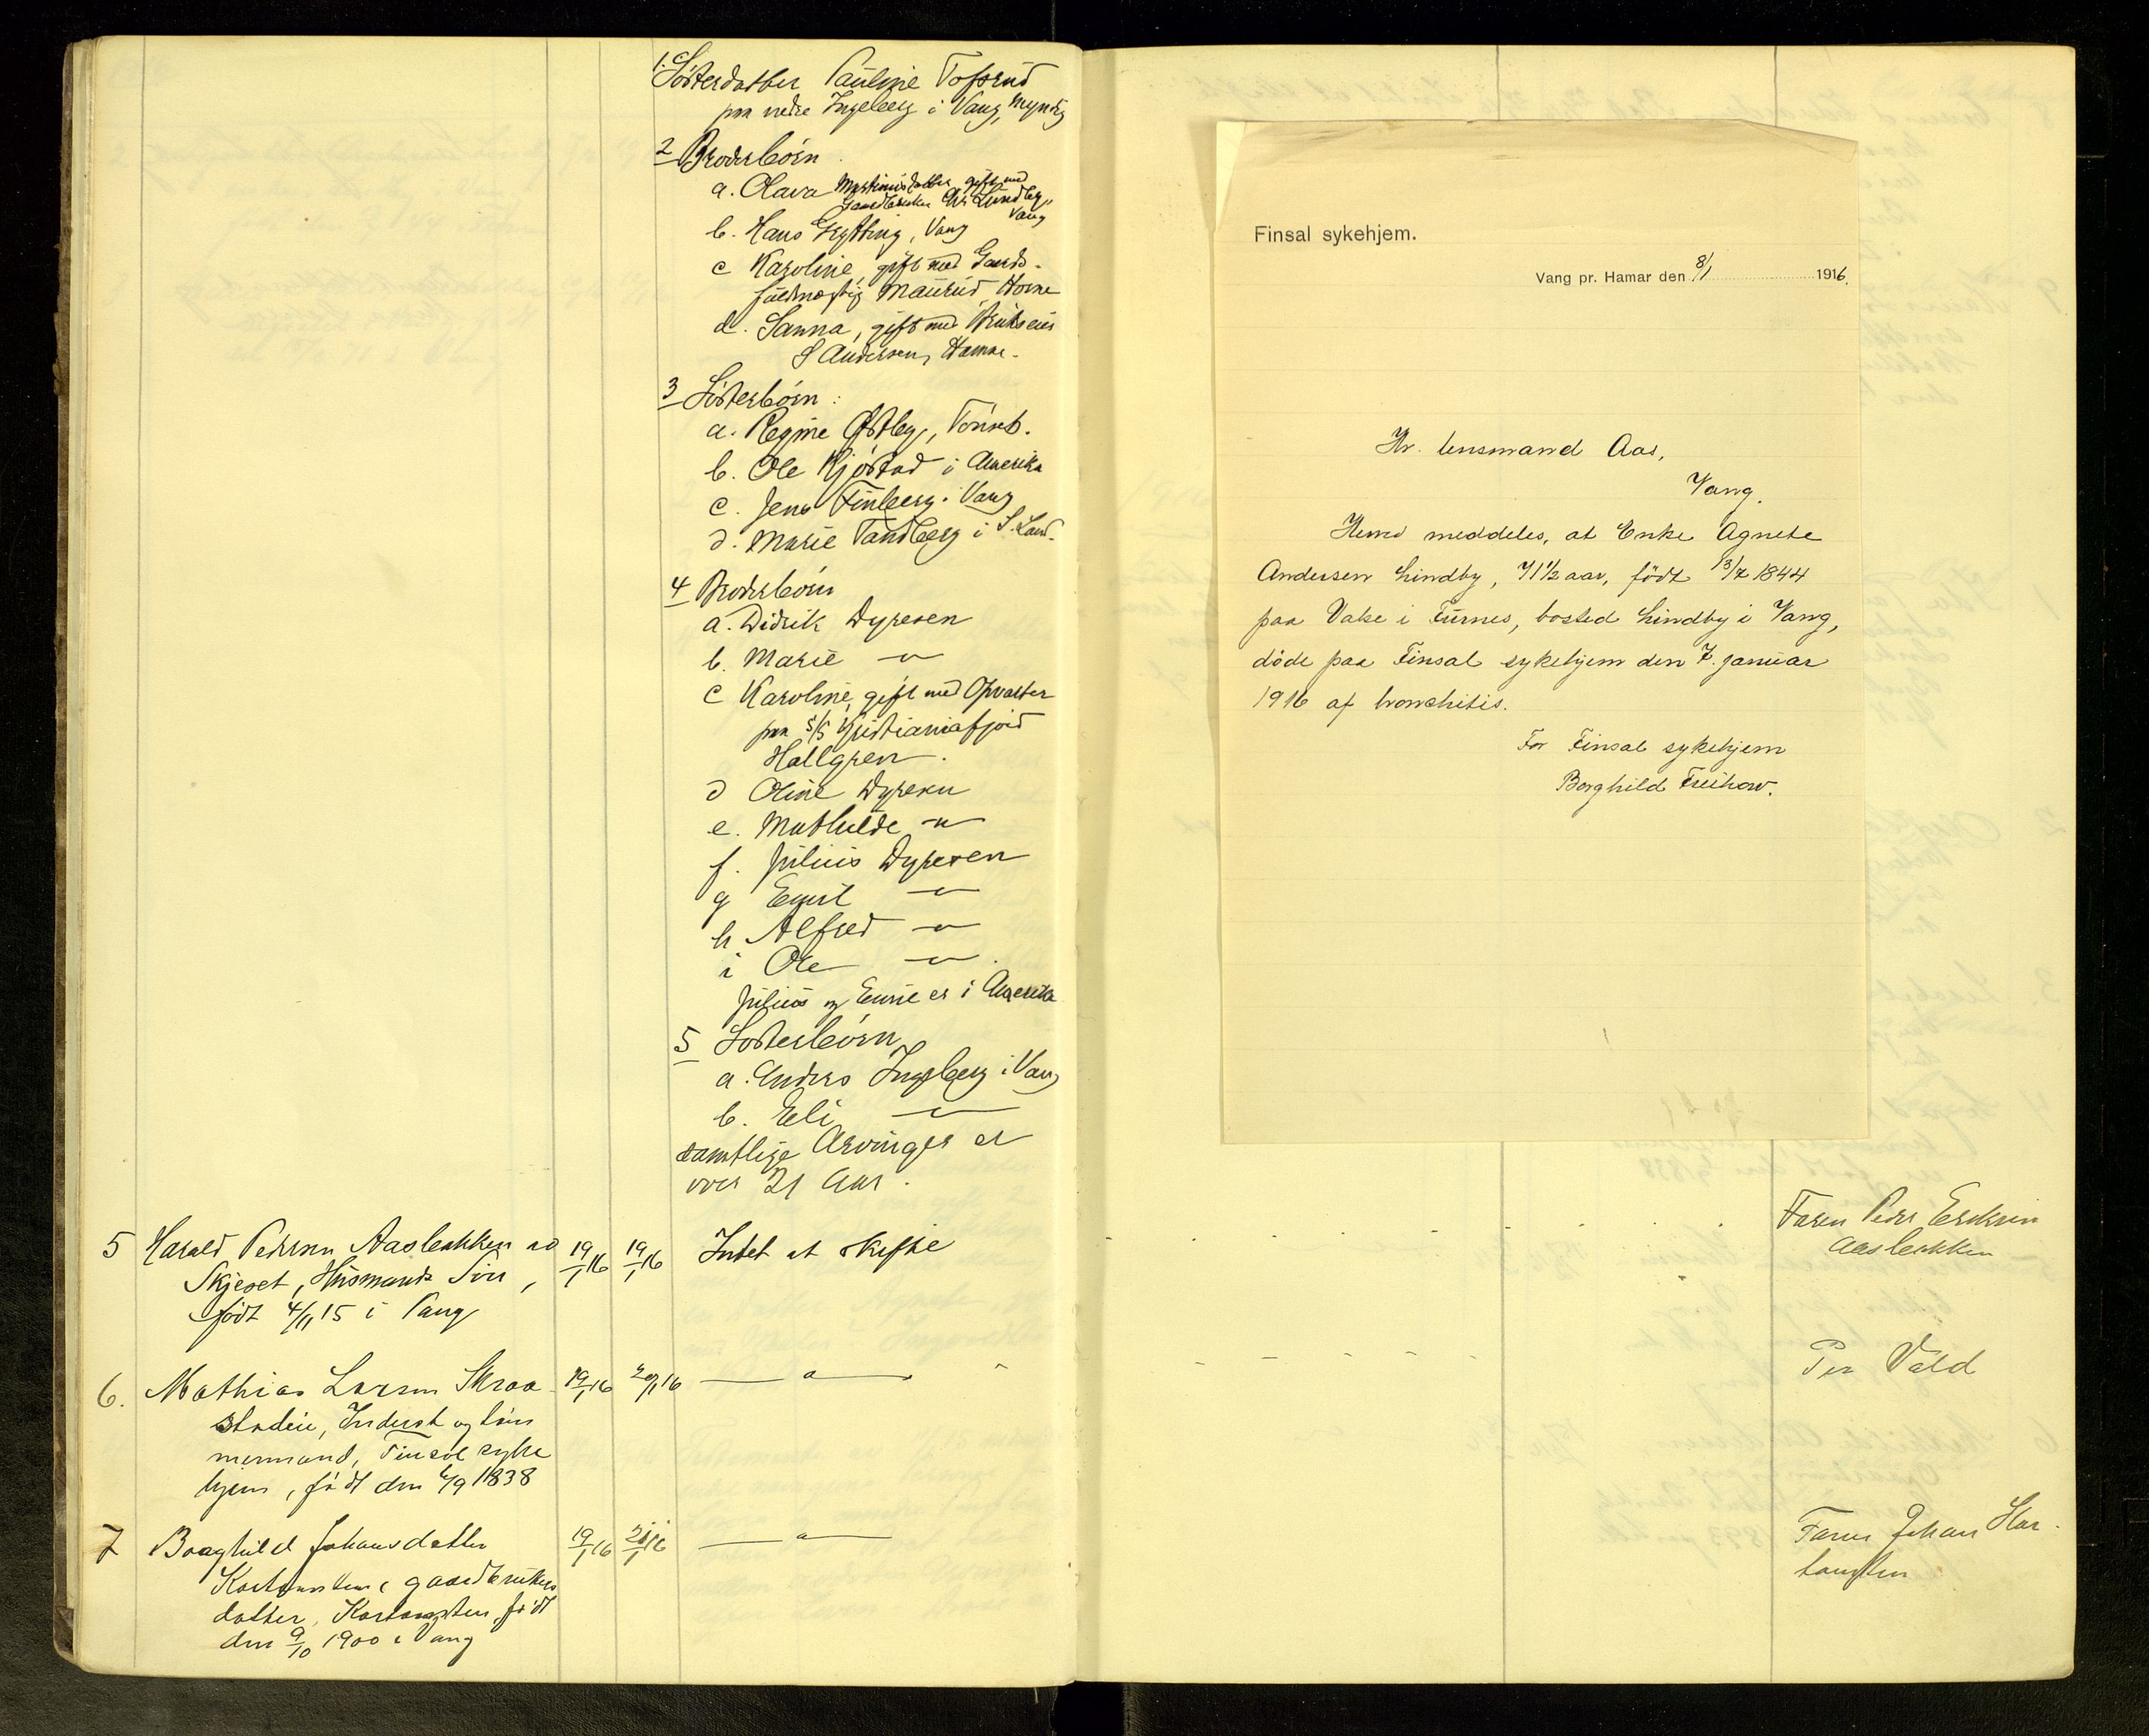 1. Søsterdatter Pauline Tofsrud
paa nedre Ingeberg i Vang, myndig
2 Broderbörn
a. Olava Martinusdatter, gift med
Gaardbruker Lundby,
Vang
b. Hans Grytting, Vang
c Karoline, gift med Gaards-
fuldmægtig Maurud Horne
d. Sanna, gift med
S Andersen, Hamar.
3 Søsterbörn :
a. Regine Østby, Tönset.
b. Ole Kjöstad i Amerika
c. Jens Finberg i Vang
d. Marie Tandberg i S. Land.
4 Broderbörn
a. Didrik Dyresen
b. Marie —"—
c Karoline, gift med Opvarter
paa S/S Kristianiafjord
Hallgren.
d Oline Dyresen
e. Mathilde —"—
f. Julius Dyresen
g Emil —"—
h Alfred —"—
i Ole —"—.
Julius og er i Amerika
5 Sosterbörn
a. Anders Ingeberg i Vang
b. Eli —"—
samtlige Arvinger er
over 21 Aar.
5 Harald Pedersen Aasbakken
Skjeset, Husmands Sön,
født 4/11 15 i Vang
19/1 16 19/1 16 Intet at skifte
Faren Peder Eriksen
Aasbakken
6. Mathias Larsen Skraa-
stadeie, Inderst og töm
mermand, Finsal syke
hjem, född den 4/9 1838
19/1 16 20/1 16 —"—
Per Vold
7 Borghild Johansdatter
Kartomten, gaardbrukers
datter, Kartomten, född
den 9/10 1900 i Vang
19/1 16 21/1 16 —"—
Faren Johan Kar-
tomten
Finsal sykehjem.
Vang pr. Hamar den 8/1 1916.
Hr. lensmand Aas,
Vang.
Herved meddeles, at Enke Agnete
Andersen Lindby, 71 1/2 aar, född 13/7 1844
paa Vake i Furnes, bosted Lindby i Vang,
döde paa Finsal sykehjem den 7. januar
1916 af bronchitis.
For Finsal sykehjem
Borghild Freihow.